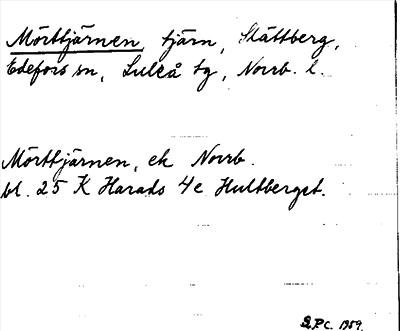 Mörttjärnen, tjärn, Slättberg,
Edefors sn, Luleå tg, Norrb. l.
Mörttjärnen, ek Norrb.
bl. 25 K Harads 4e Hultberget.
1959.